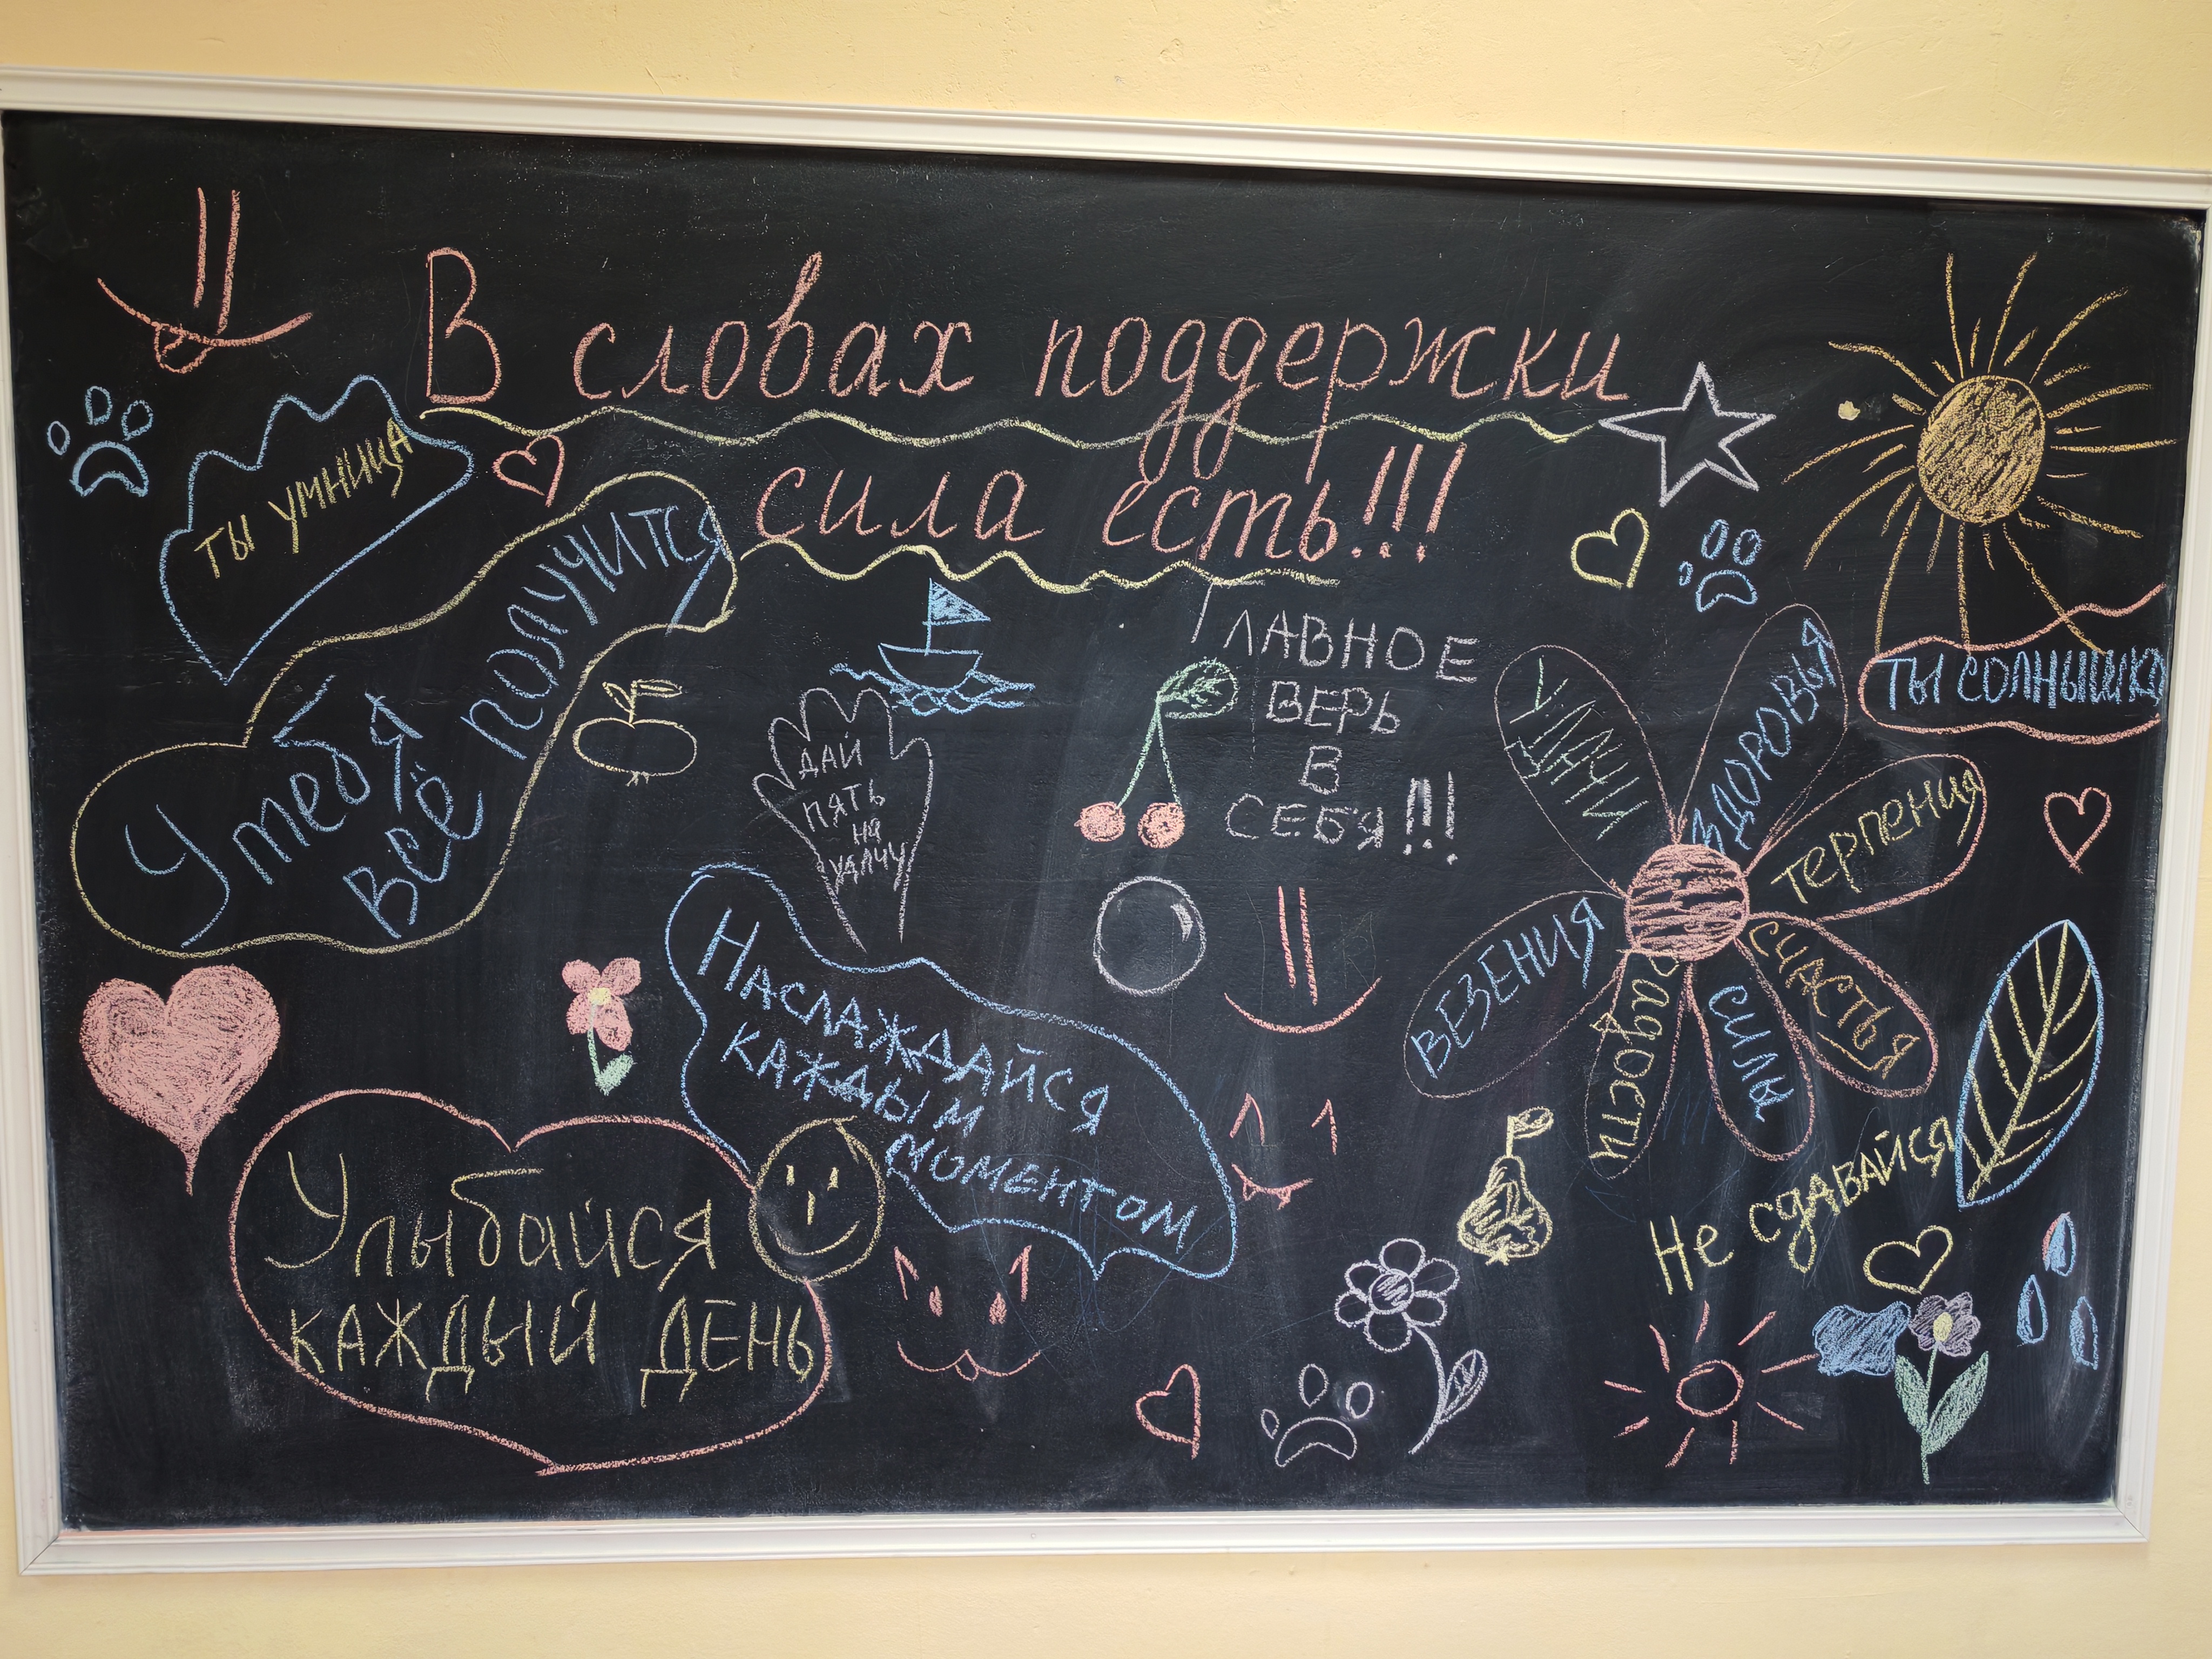 В словах поддержки
сила есть!!!
ТЫ УМНИЦА
У тебя
всё получится
ГЛАВНОЕ
ВЕРЬ
В
СЕБЯ!!!
ДАЙ
ПЯТЬ
НА
УДАЧУ
ТЫ СОЛНЫШКО
УДАЧИ
ЗДОРОВЬЯ
терпения
СЧАСТЬЯ
СИЛЫ
радости
ВЕЗЕНИЯ
НАСЛАЖДАЙСЯ
КАЖДЫМ
МОМЕНТОМ
Улыбайся
КАЖДЫЙ ДЕНЬ
Не сдавайся